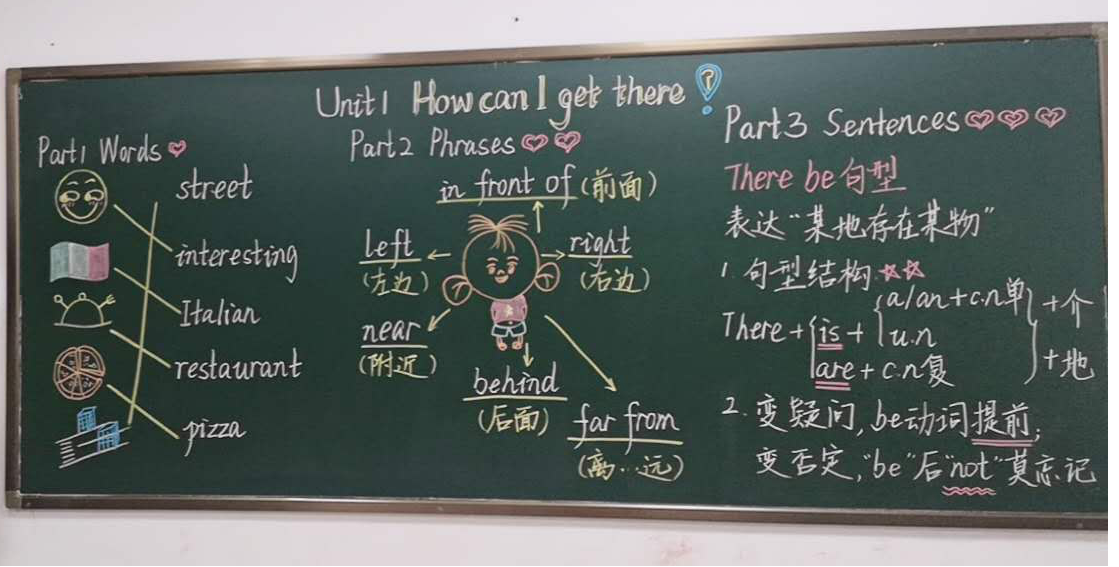 Unit 1 How can I get there?
Part1 Words
street
interesting
Italian
restaurant
pizza
Part2 Phrases
in front of (前面)
left
(左边)
right
(右边)
near
(附近)
behind
(后面)
far from
(离…远)
Part3 Sentences
There be句型
表达“某地存在某物”
1. 句型结构
There + is + a/an + c.n单 + 介
u.n
are + c.n复 + 地
2. 变疑问, be动词提前;
变否定, "be"后"not"莫忘记